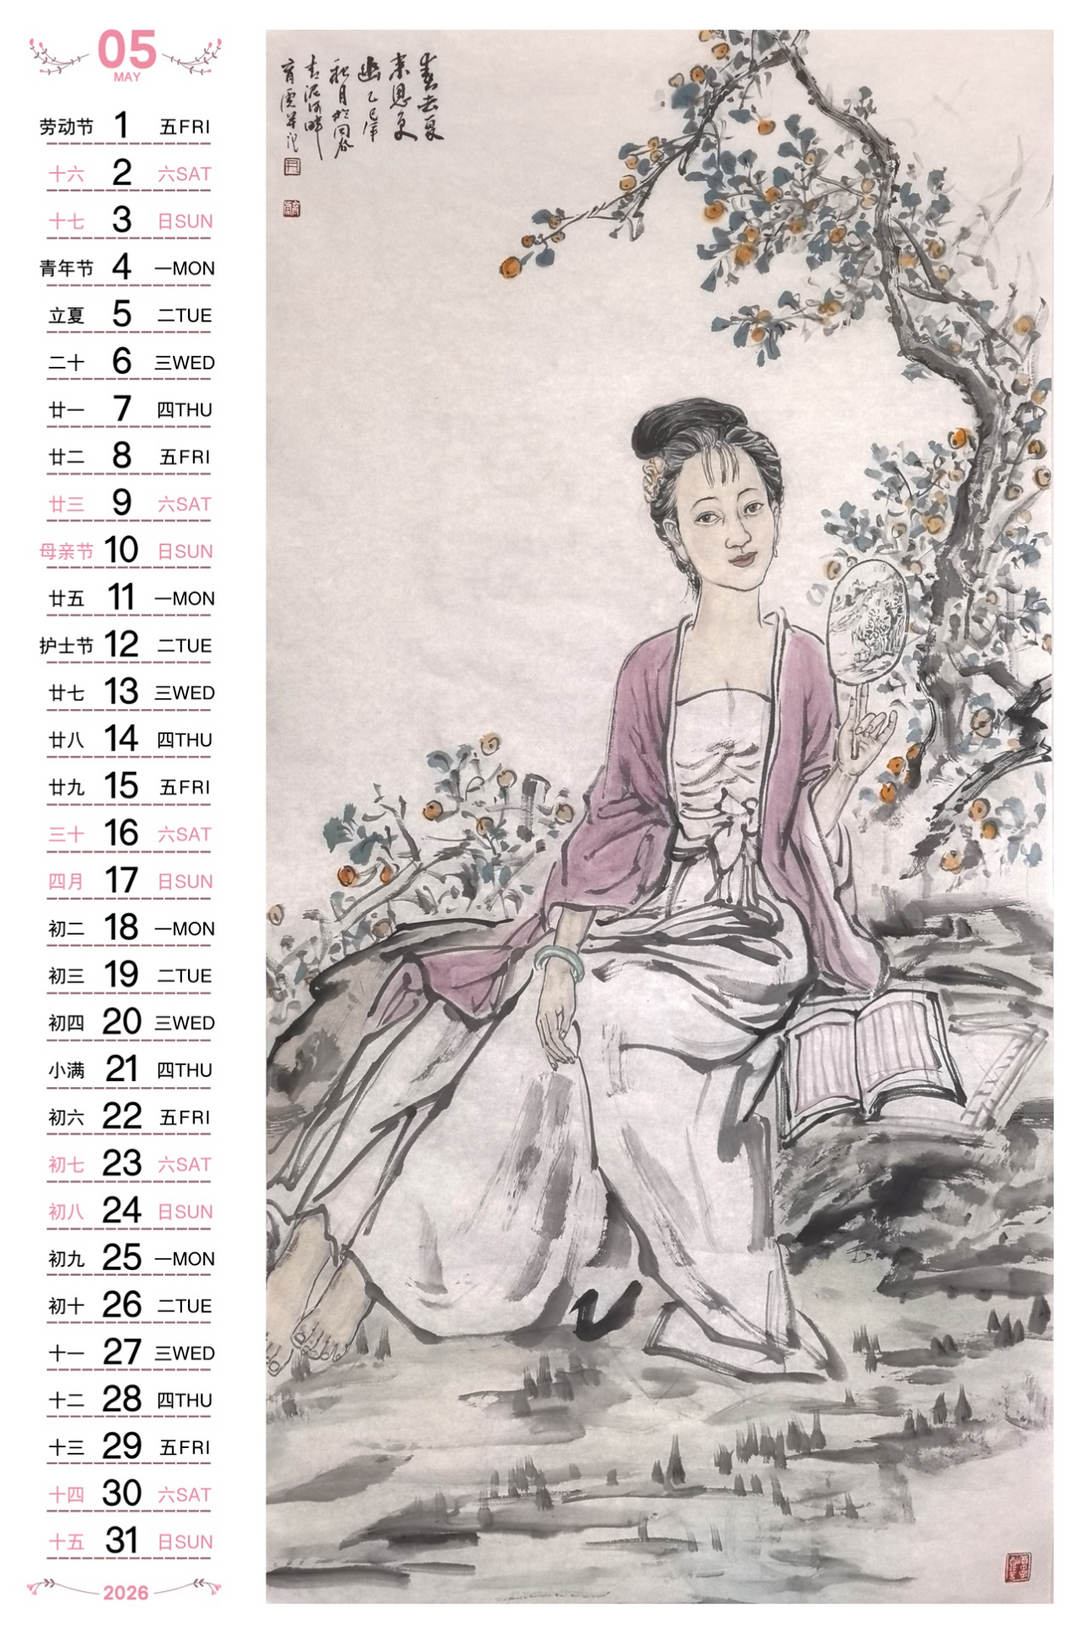 05
MAY
劳动节 1 五FRI
十六 2 六SAT
十七 3 日SUN
青年节 4 一MON
立夏 5 二TUE
二十 6 三WED
廿一 7 四THU
廿二 8 五FRI
廿三 9 六SAT
母亲节 10 日SUN
廿五 11 一MON
护士节 12 二TUE
廿七 13 三WED
廿八 14 四THU
廿九 15 五FRI
三十 16 六SAT
四月 17 日SUN
初二 18 一MON
初三 19 二TUE
初四 20 三WED
小满 21 四THU
初六 22 五FRI
初七 23 六SAT
初八 24 日SUN
初九 25 一MON
初十 26 二TUE
十一 27 三WED
十二 28 四THU
十三 29 五FRI
十四 30 六SAT
十五 31 日SUN
2026
春去夏
来思更
幽乙巳年
秋月於同春